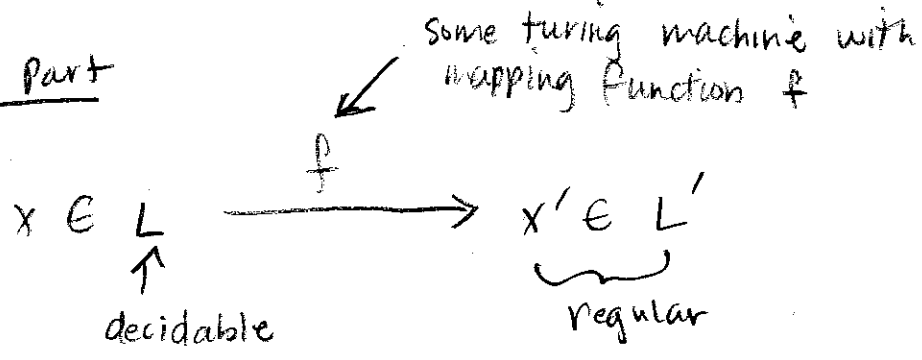 some turing machine with
mapping function f
Part
f
x ∈ L
x' ∈ L'
decidable
regular